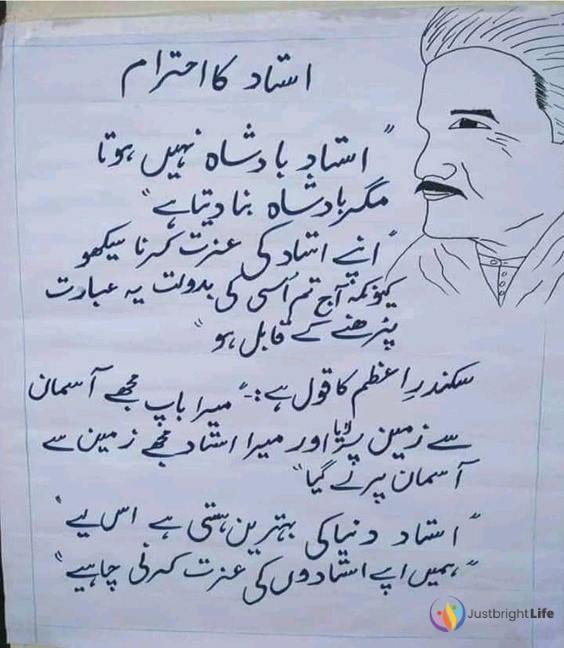 استاد کا احترام
"استاد بادشاہ نہیں ہوتا
مگر بادشاہ بنا دیتا ہے"
"اپنے استاد کی عزت کرنا سیکھو
کیونکہ آج تم اُسی کی بدولت یہ عبارت
پڑھنے کے قابل ہو"
سکندرِ اعظم کا قول ہے:- "میرا باپ مجھے آسمان
سے زمین پر لایا اور میرا استاد مجھے زمین سے
آسمان پر لے گیا"
"استاد دنیا کی بہترین ہستی ہے اس لیے
ہمیں اپنے استادوں کی عزت کرنی چاہیے"
JustbrightLife